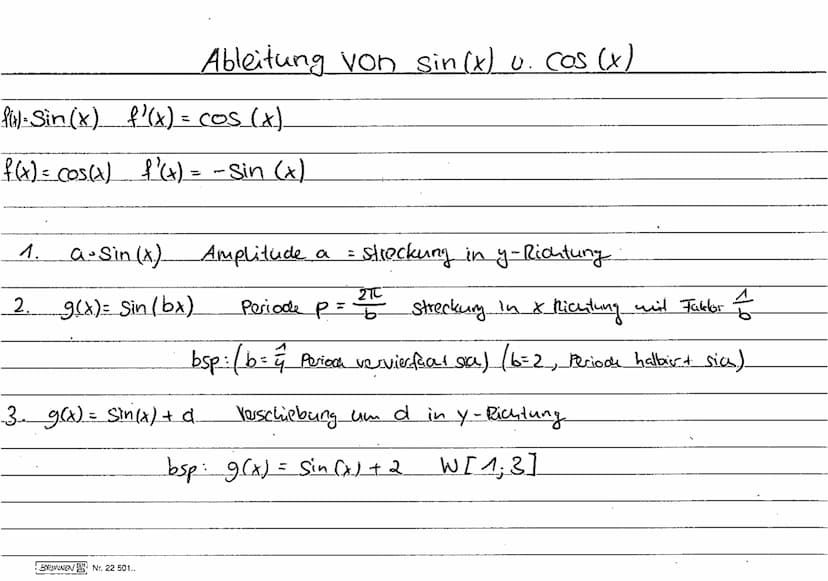 Ableitung von sin(x) u. cos(x)
f(x)=sin(x) f'(x) = cos(x)
f(x)=cos(x) f'(x) = -sin(x)
1. a·sin(x) Amplitude a = streckung in y-Richtung
2. g(x)= sin(bx) Periode p = 2π/b streckung in x Richtung mit Faktor 1/b
bsp: (b= 1/4 Periode vervierfacht sich) (b=2, Periode halbiert sich)
3. g(x) = sin(x) + d Verschiebung um d in y-Richtung
bsp: g(x) = sin(x) + 2 W[1;3]
BRUNNEN Nr. 22 501..